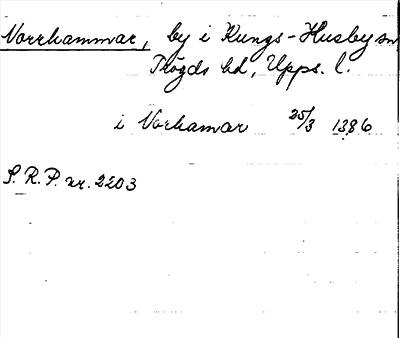 Norrhammar, by i Kungs-Husby sn
Trögds hd, Upps. l.
i Norhamar 25/3 1386
S.R.P. nr. 2203